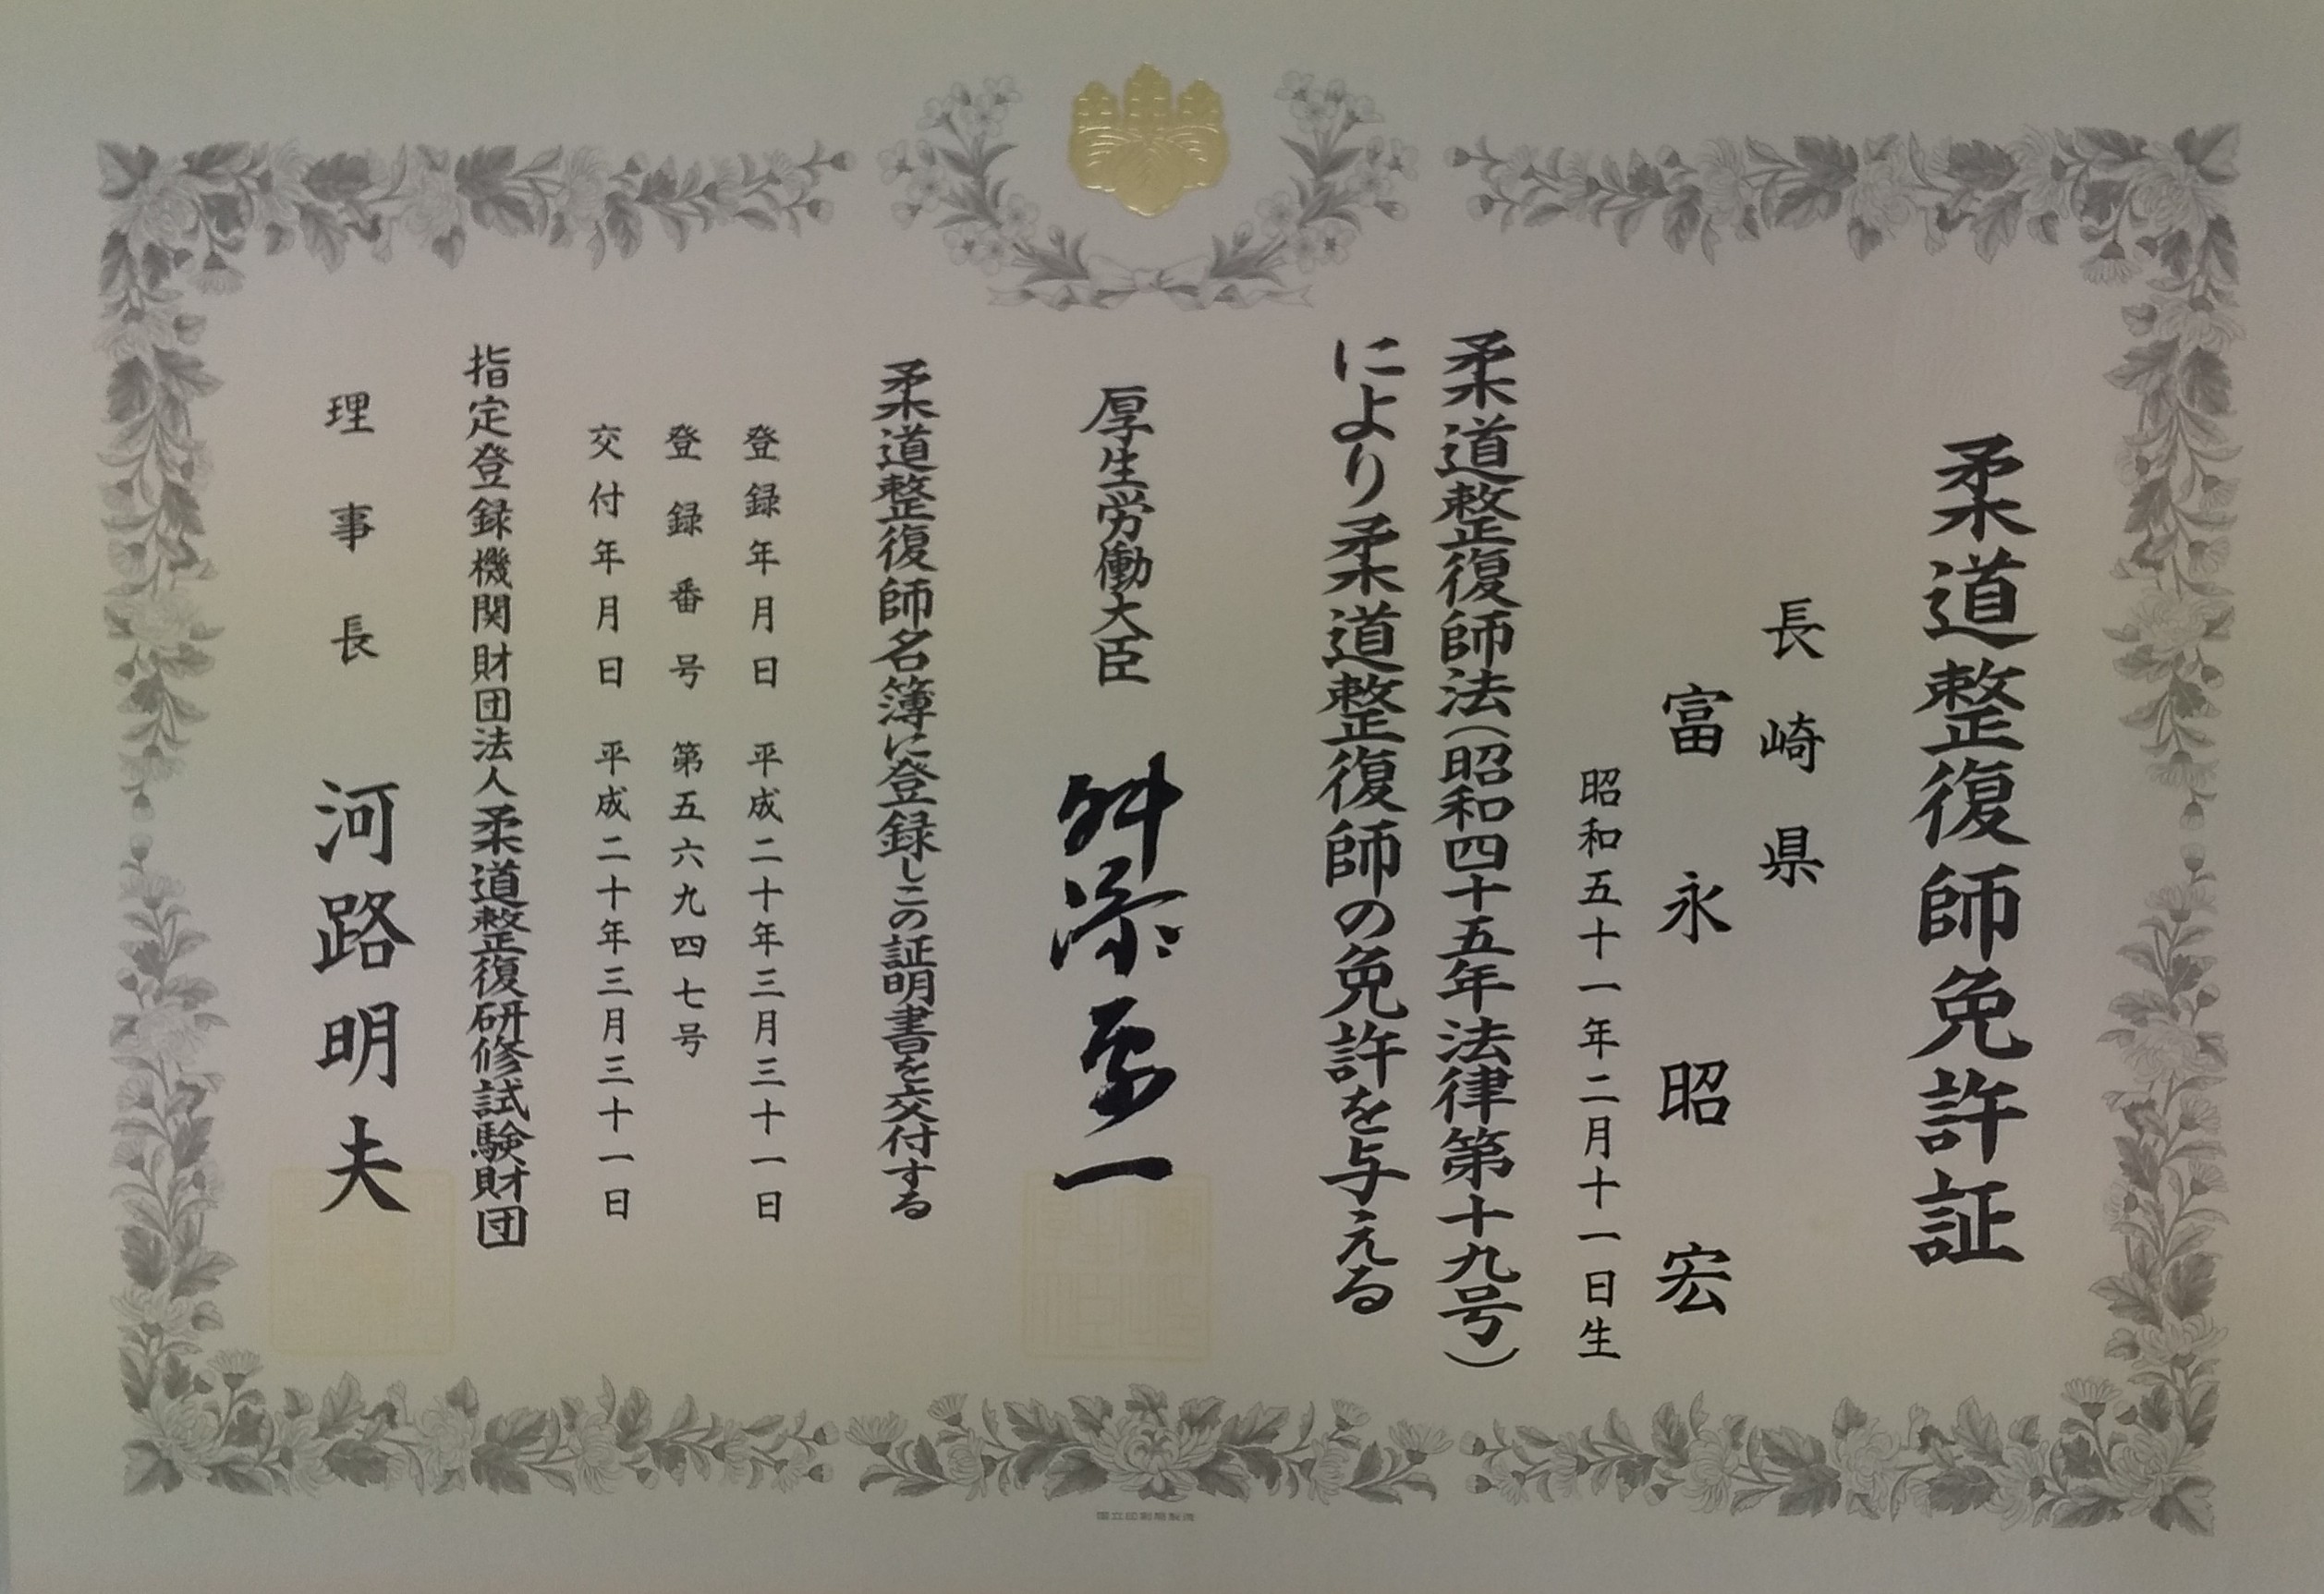 柔道整復師免許証
長崎県
富永昭宏
昭和五十一年二月十一日生
柔道整復師法(昭和四十五年法律第十九号)
により柔道整復師の免許を与える
厚生労働大臣 舛添要一
柔道整復師名簿に登録しこの証明書を交付する
登録年月日 平成二十年三月三十一日
登録番号 第五六九四七号
交付年月日 平成二十年三月三十一日
指定登録機関財団法人柔道整復研修試験財団
理事長 河路明夫
国立印刷局製造